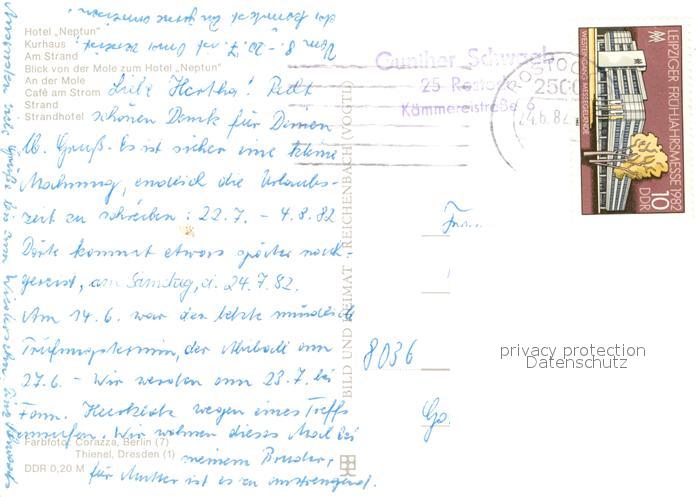 Hotel „Neptun"
Kurhaus
Am Strand
Blick von der Mole zum Hotel „Neptun"
An der Mole
Café am Strom
Strand
Strandhotel
Liebe Hertha! Recht
schönen Dank für Deinen
lb. Gruß. Es ist sicher eine kleine
Mahnung, endlich die Urlaubs-
zeit zu schreiben: 22.7. - 4.8.82
Dörte kommt etwas später nach-
gereist, am Samstag, d. 24.7.82.
Am 14.6. war der letzte mündliche
Prüfungstermin, der Abiball am
27.6 - Wir werden am 23.7. bei
Fam. wegen eines Treffs
anrufen. Wir wohnen dieses Mal bei
meinem Bruder,
für Mutter ist es zu anstrengend.
Vom 8. - 20.7. ist Omi
Ansonsten viele Grüße bis zum Wiedersehen.
Farbfoto: Corazza, Berlin (7)
Thienel, Dresden (1)
DDR 0,20 M
BILD UND HEIMAT REICHENBACH (VOGTL)
Gunther Schwach
25 Rostock
Kämmereistraße 6
ROSTOCK
2500
24.6.82
LEIPZIGER FRÜHJAHRSMESSE 1982
WESTEINGANG MESSEGELÄNDE
10
DDR
8036
privacy protection
Datenschutz